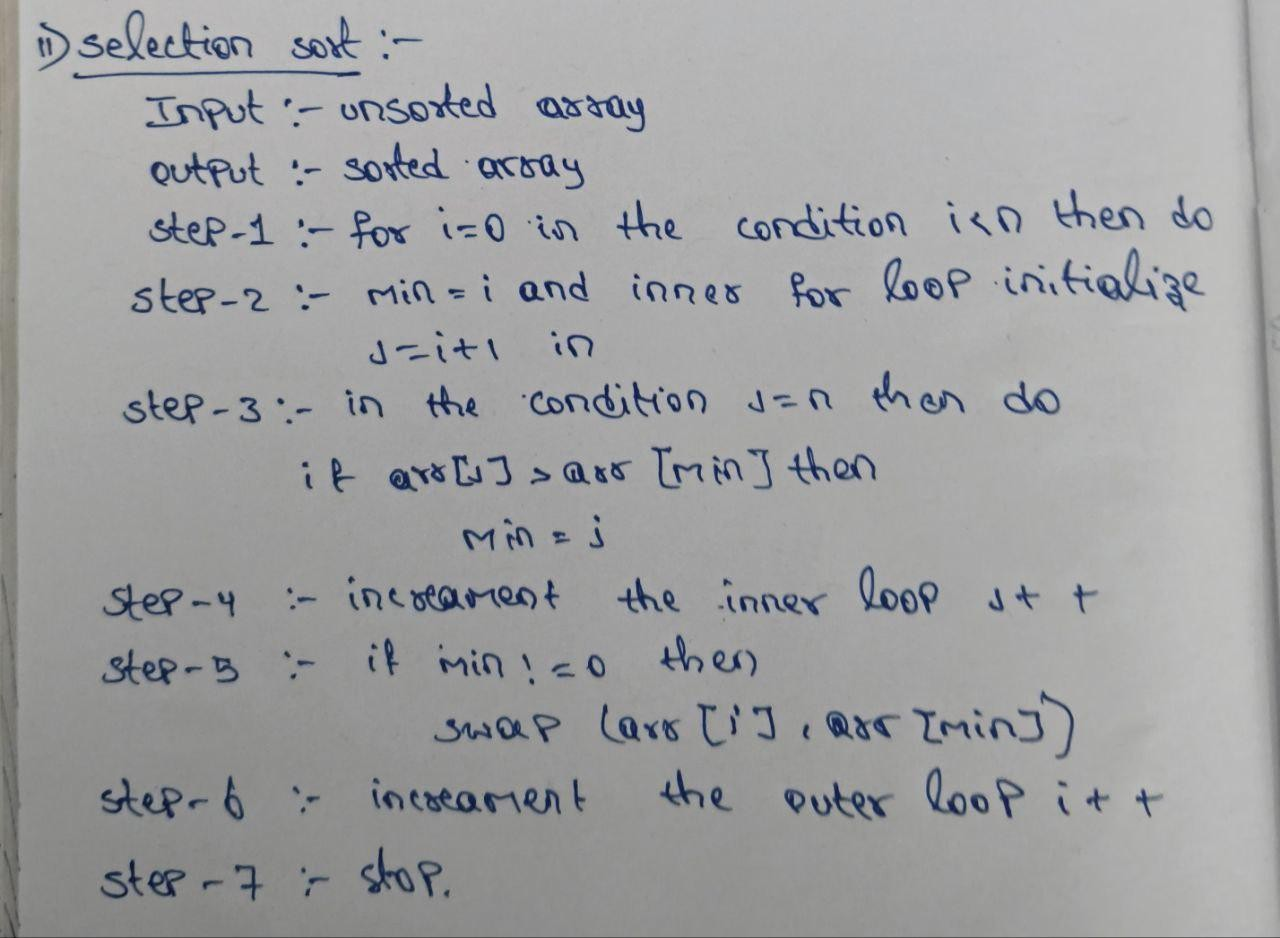 ii) selection sort :-
Input :- unsorted array
output :- sorted array
step-1 :- for i=0 in the condition i<n then do
step-2 :- min = i and inner for loop initialize
j=i+1 in
step-3 :- in the condition j=n then do
if arr[j] > arr [min] then
min = j
step-4 :- increament the inner loop j++
step-5 :- if min != 0 then
swap (arr [i], arr [min])
step-6 :- increament the outer loop i++
step-7 :- stop.